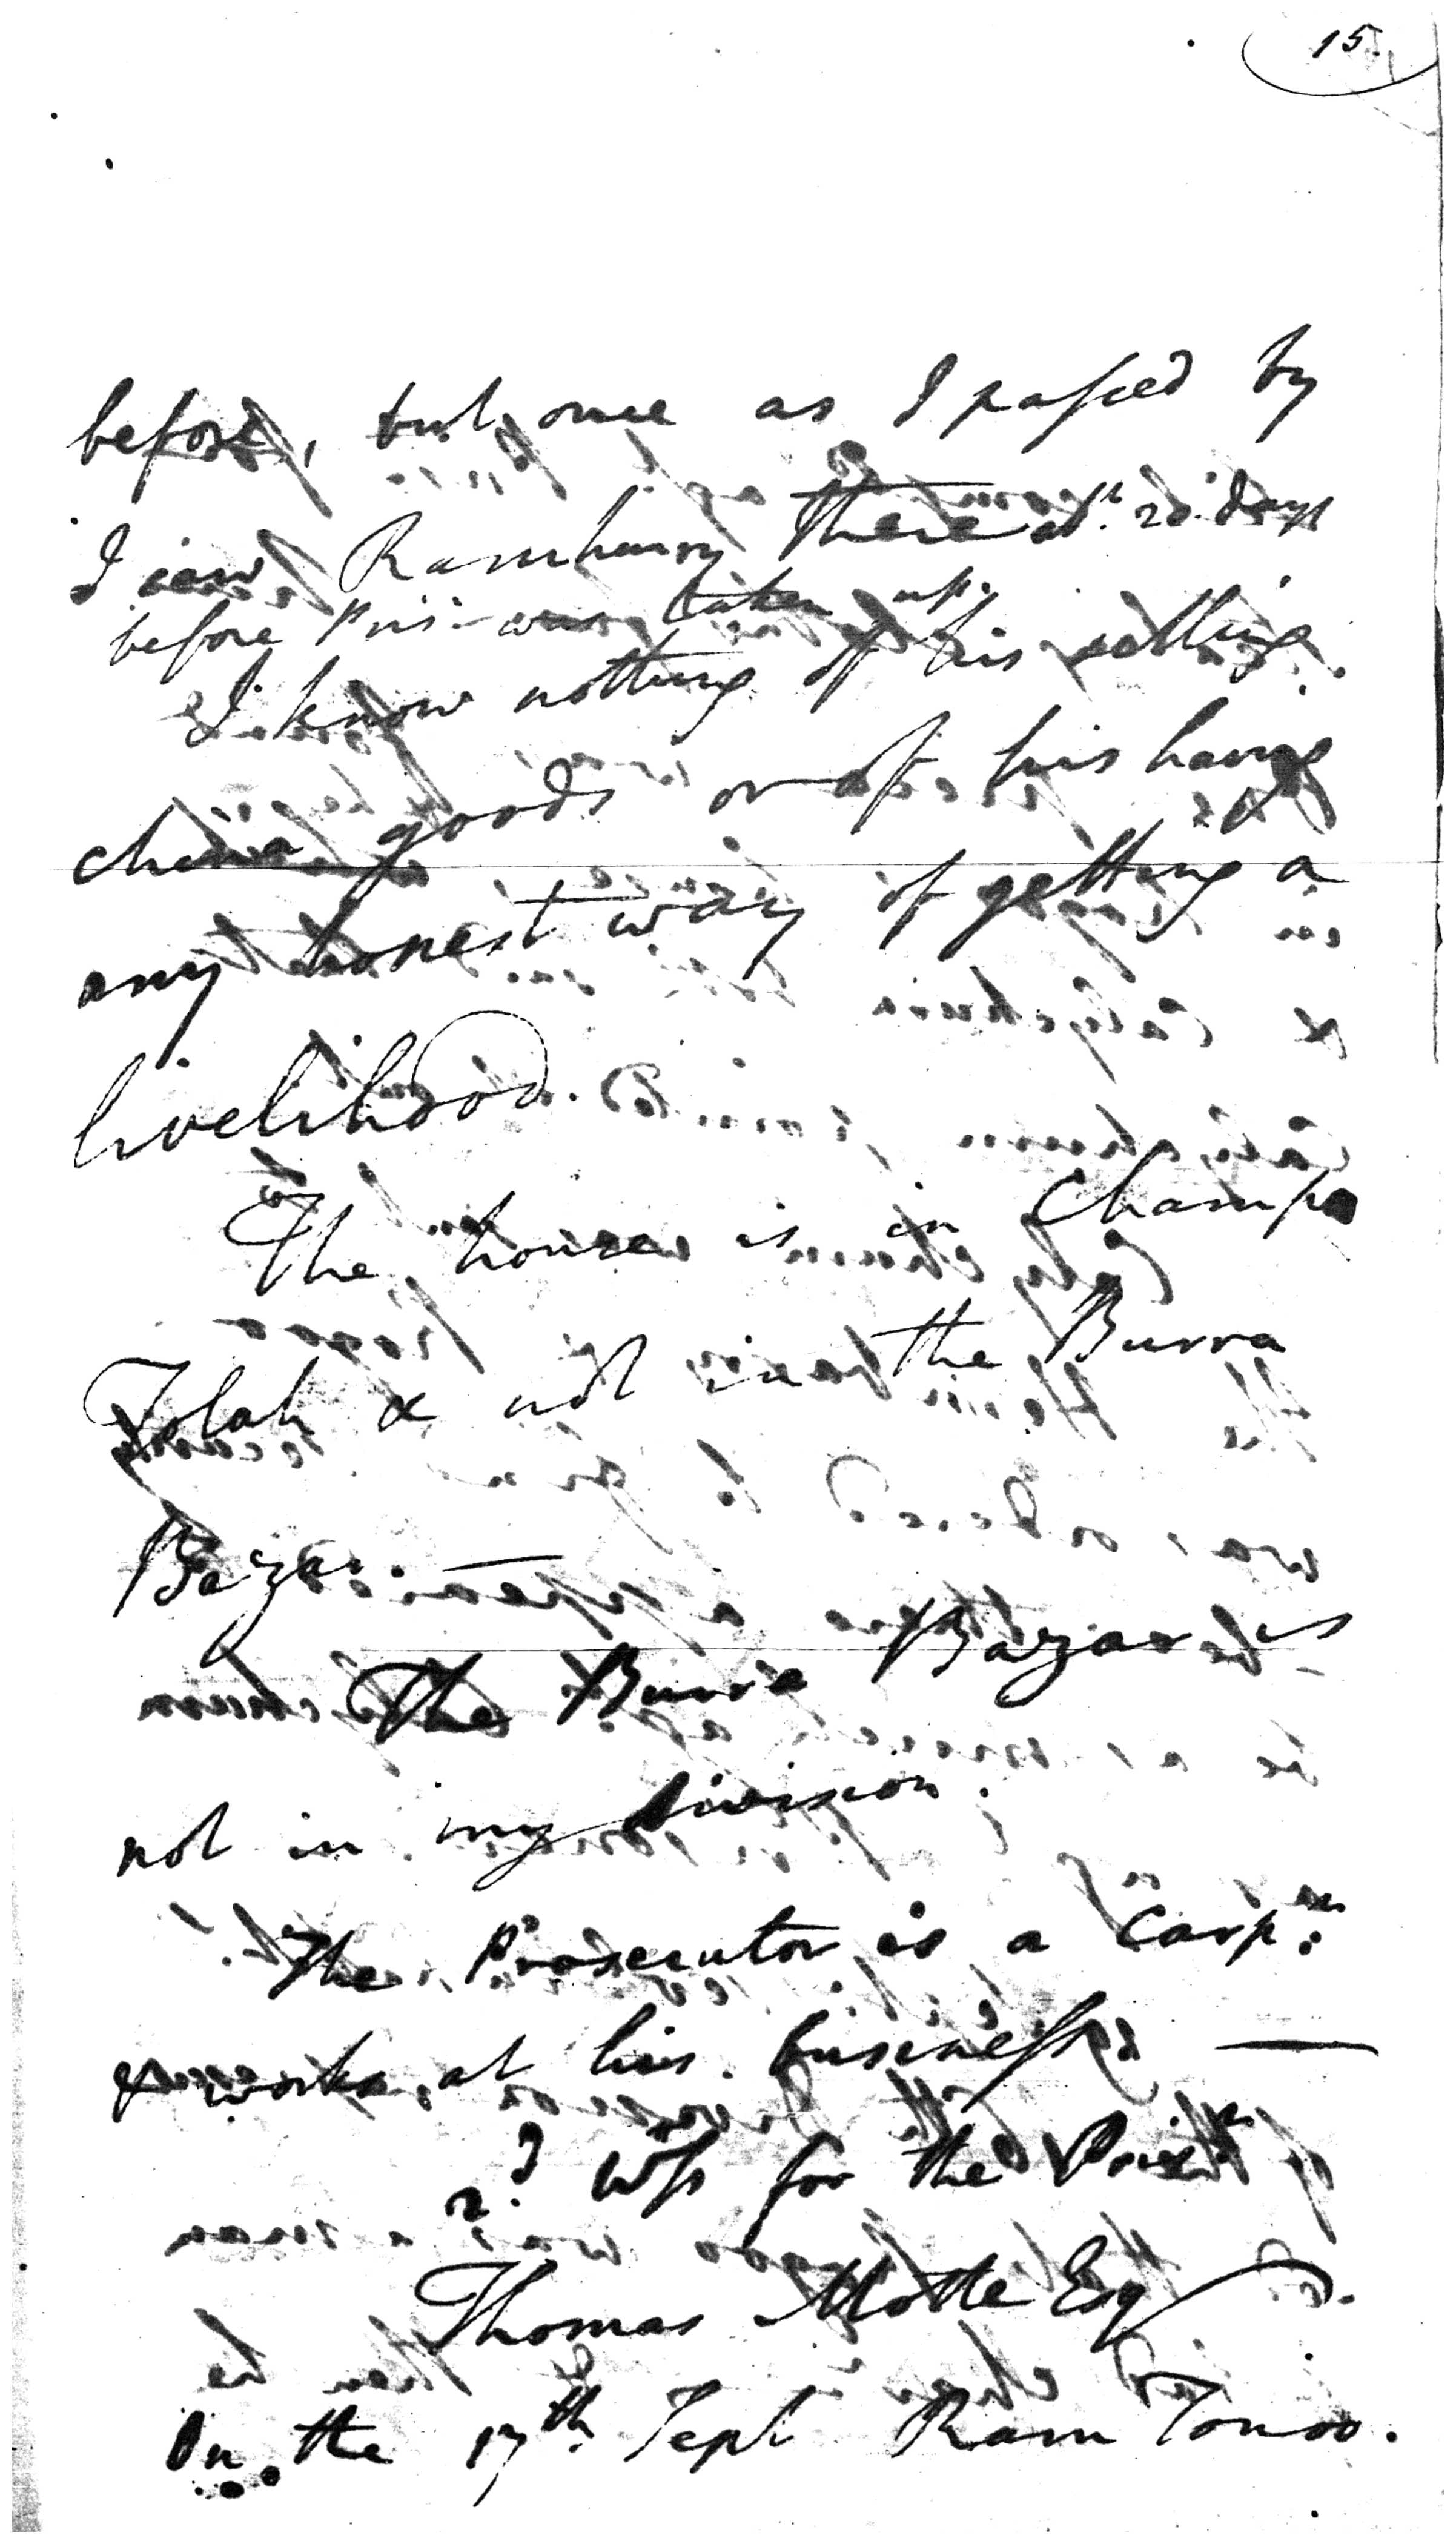 15.
before, but once as I passed by
I saw Ramhurry there abt. 20 days
before Prisr. was taken up.
I know nothing of his selling
china goods or of his having
any honest way of getting a
livelihood.
The house is in Champa
Tolah & not in the Burra
Bazar. —
The Burra Bazar is
not in my division.
The Prosecutor is a Carpr.
& works at his business —
2d. Wss for the Prisr.
Thomas Motte Esqr.
On the 17th. Sept Ram Tonoo.